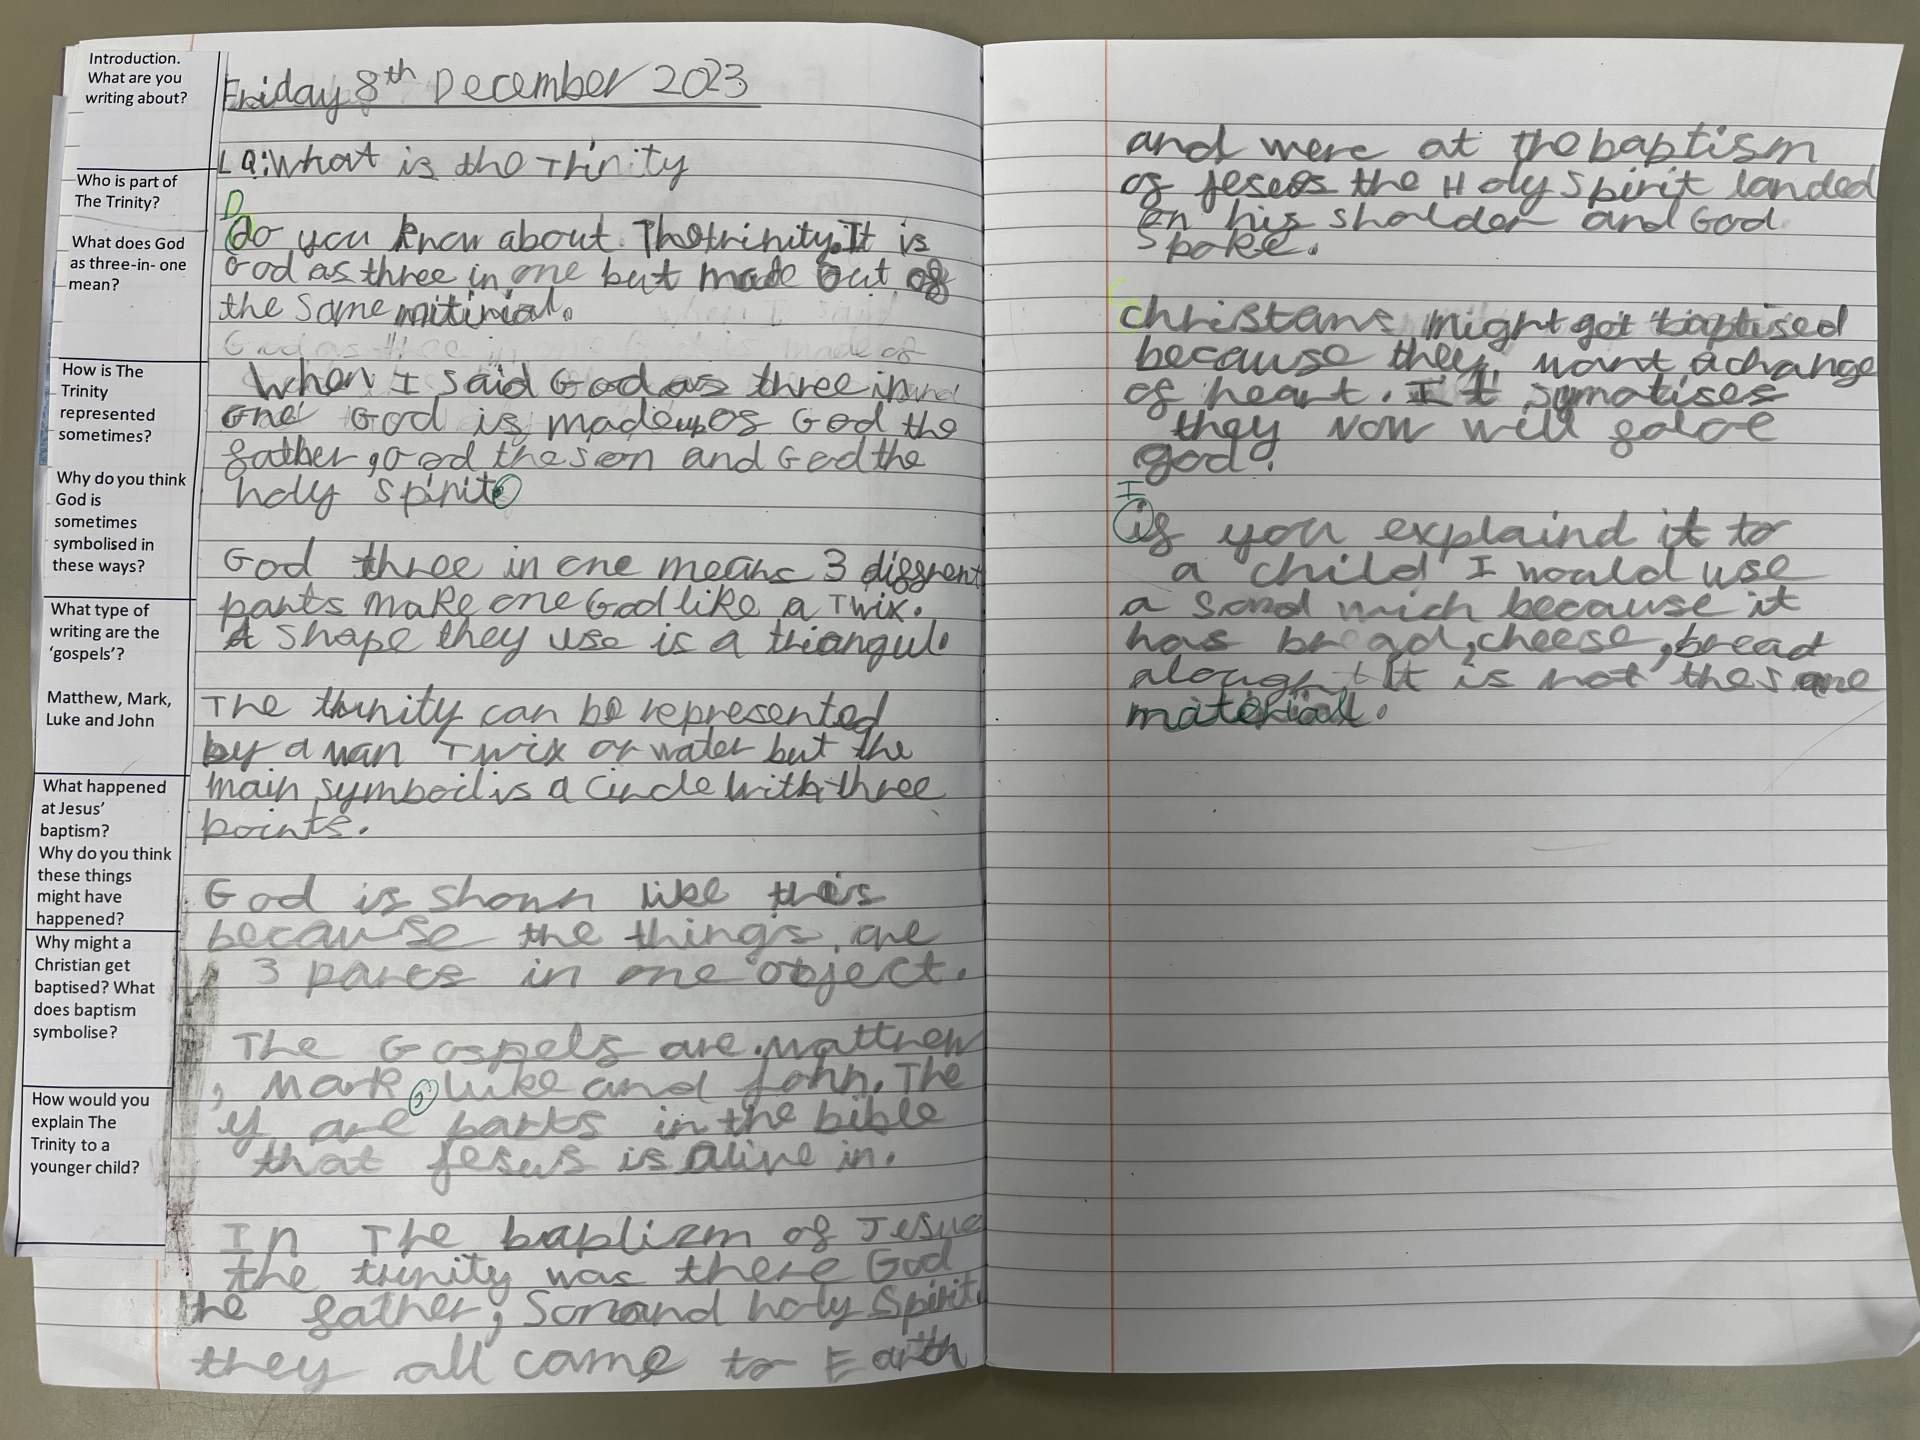 Introduction.
What are you
writing about?
Who is part of
The Trinity?
What does God
as three-in- one
mean?
How is The
Trinity
represented
sometimes?
Why do you think
God is
sometimes
symbolised in
these ways?
What type of
writing are the
‘gospels’?
Matthew, Mark,
Luke and John
What happened
at Jesus’
baptism?
Why do you think
these things
might have
happened?
Why might a
Christian get
baptised? What
does baptism
symbolise?
How would you
explain The
Trinity to a
younger child?
Friday 8th December 2023
LQ: What is the Trinity
D
do you know about The trinity. It is
God as three in one but made out of
the same mitirial.
When I said God as three in
one God is made up of God the
father, God the son and God the
holy spirit.
God three in one means 3 diffrent
parts make one God like a Twix.
A shape they use is a triangul.
The trinity can be represented
by a man Twix or water but the
main symboil is a circle with three
points.
God is shown like this
because the things are
3 parts in one object.
The Gospels are Matthew
, Mark, Luke and John. The
y are parts in the bible
that Jesus is alive in.
In The baptizm of Jesus
the trinity was there God
the father, Son and holy Spirit
they all came to Earth
and were at the baptism
of Jeses the Holy Spirit landed
on his sholder and God
spoke.
christans might get baptised
because they want a change
of heart. It symatises
they now will
god.
I
if you explaind it to
a child I would use
a sandwich because it
has bread, cheese, bread
alought it is not the same
material.